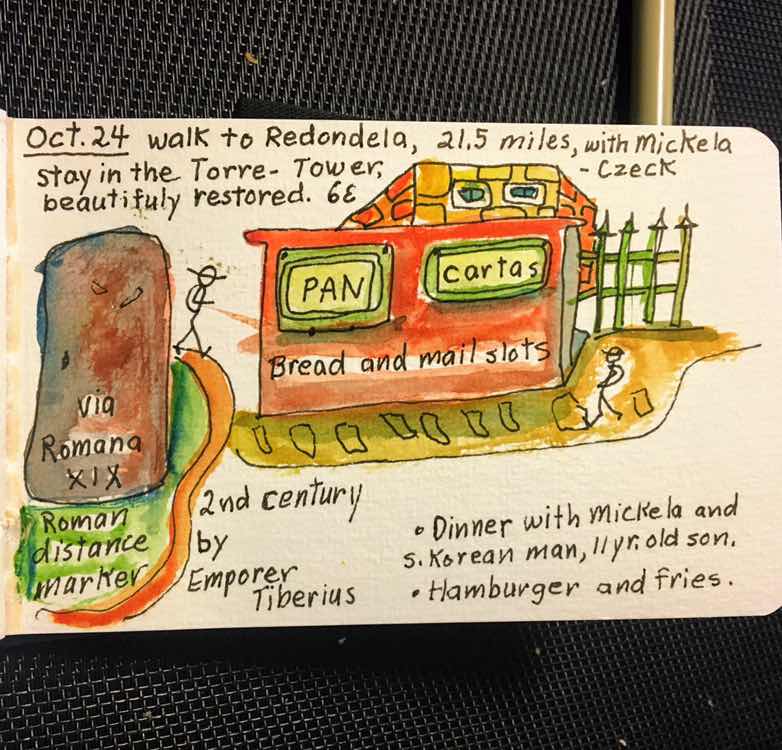 Oct. 24 walk to Redondela, 21.5 miles, with Mickela
stay in the Torre-Tower, - Czeck
beautifuly restored. 6€
PAN
cartas
Bread and mail slots
via
Romana
XIX
Roman
distance
marker
2nd century
by
Emporer
Tiberius
• Dinner with Mickela and
S. Korean man, 11 yr. old son.
• Hamburger and fries.